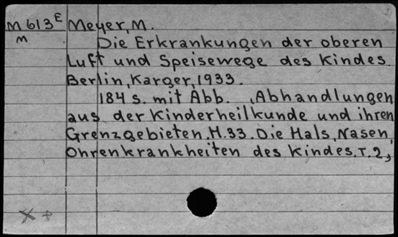 M613E Meyer, M.
M
Die Erkrankungen der oberen
Luft und Speisewege des Kindes.
Berlin, Karger, 1933.
184 s. mit Abb. (Abhandlungen
aus der Kinderheilkunde und ihren
Grenzgebieten. H.33. Die Hals, Nasen,
Ohrenkrankheiten des Kindes. T.2,